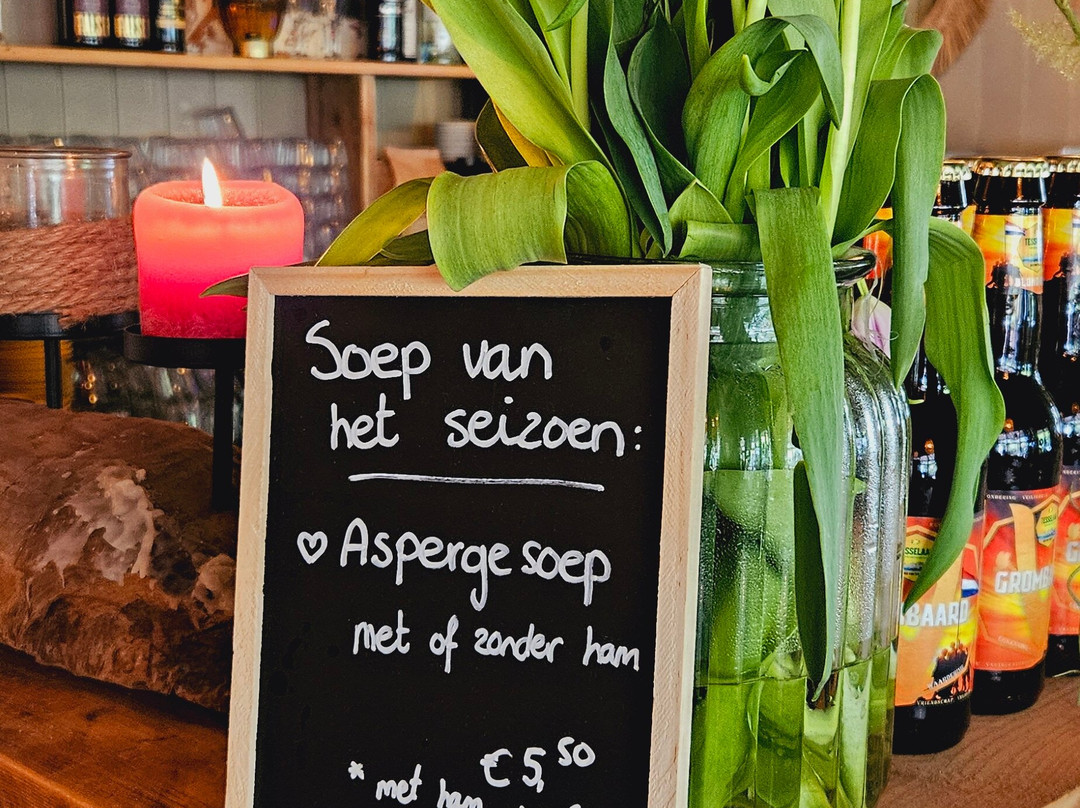 Soep van
het seizoen:
♡ Aspergesoep
met of zonder ham
€ 5,50
* met ham
TESSELAAR
BAARD